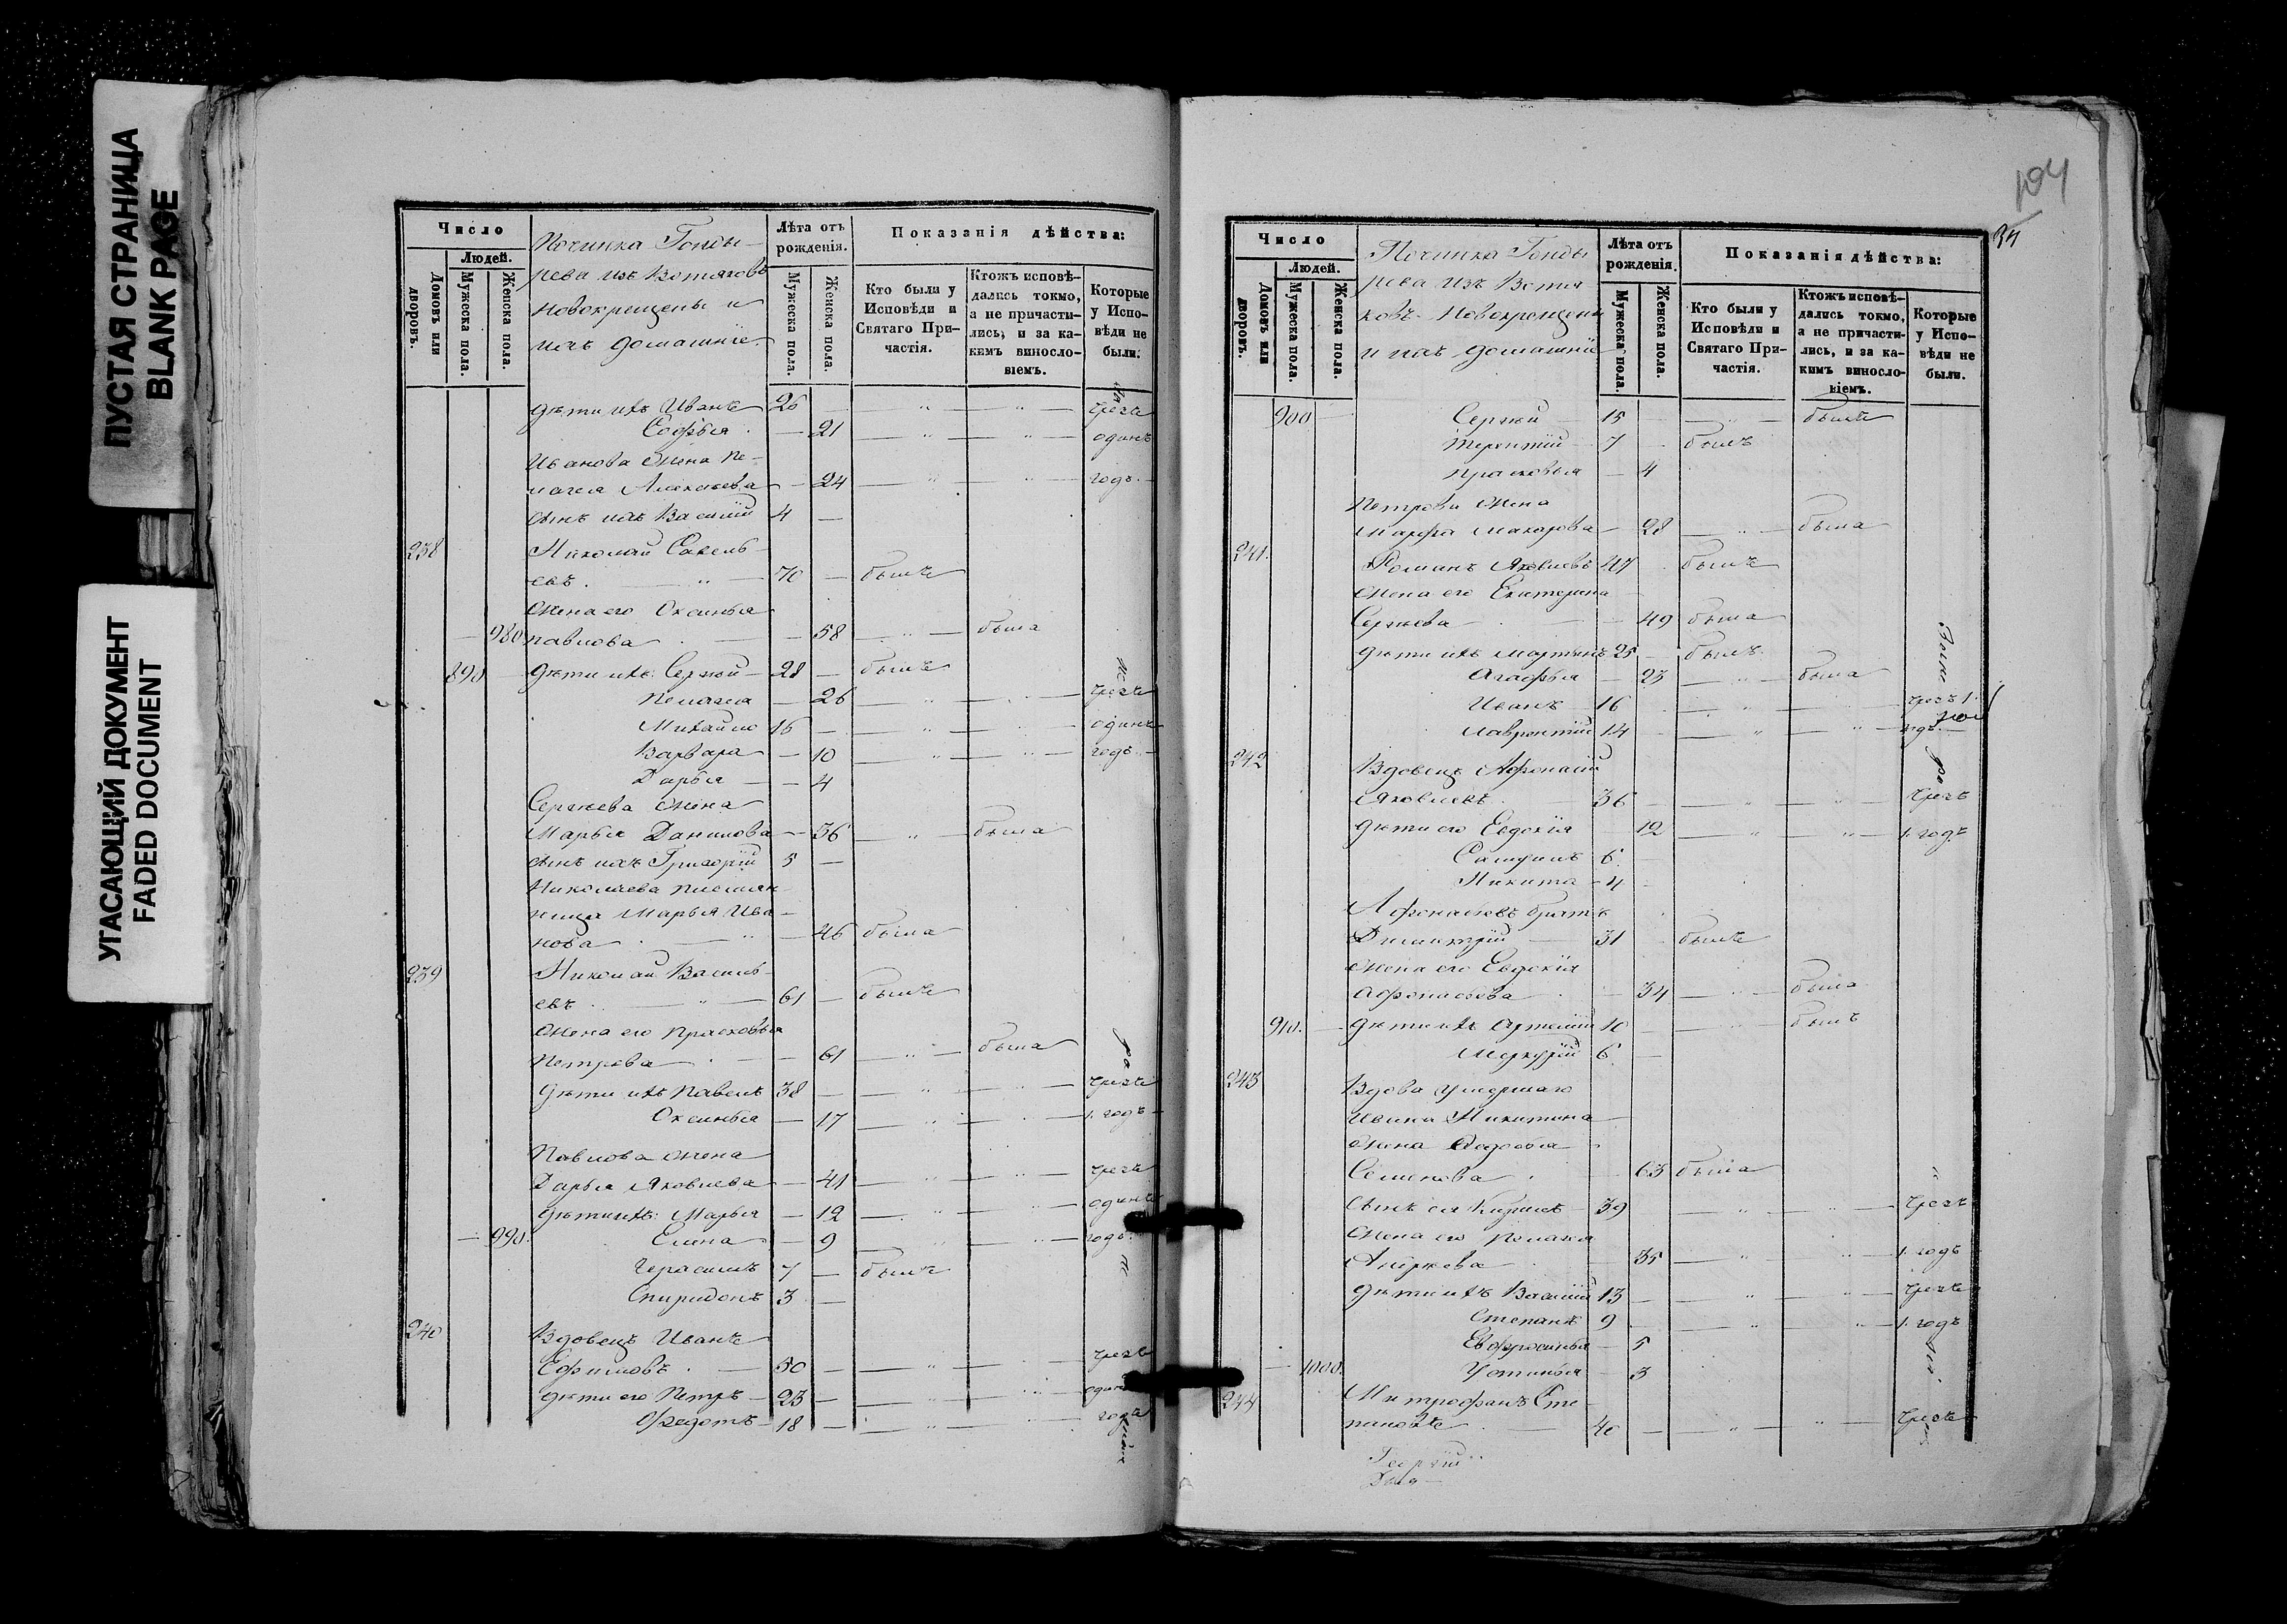 ПУСТАЯ СТРАНИЦА
BLANK PAGE
УГАСАЮЩИЙ ДОКУМЕНТ
FADED DOCUMENT
Число
Людей.
Домовъ или дворовъ.
Мужеска пола.
Женска пола.
Починка Гонды-
рева изъ Вотяговъ
новокрещены и
ихъ домашніе.
Лѣта отъ рожденія.
Мужеска пола.
Женска пола.
Показанія дѣйства:
Кто были у Исповѣди и Святаго При-частія.
Ктожъ исповѣ-дались токмо, а не причасти-лись, и за ка-кемъ виносло-віемъ.
Которые у Испо-вѣди не были.
дѣти ихъ Иванъ 26 — " — " — чрезъ
Софья — 21 — " — " — одинъ
Иванова жена Пе-
лагея Алексѣева — 24 — " — " — годъ.
сынъ ихъ Василій 4 —
238 Николай Савель-
евъ. — " — 70 — былъ
жена его Оксинья
980 Павлова — 58 — " — была
890 дѣти ихъ: Сергѣй — 28 — былъ
Пелагея — 26 — " — чрезъ
Михайло 16 — " — одинъ
Варвара — 10 — " — " — годъ.
Дарья — 4
Сергѣева жена
Марья Данилова — 36 — " — была
сынъ ихъ Григорій 5 —
Николаева племян-
ница Марья Ива-
нова — " — 46 была
239 Николай Василь-
евъ. — " — 61 — былъ
жена его Прасковья
Петрова — 61 — " — была
дѣти ихъ Павелъ 38 — " — " — чрезъ
Оксинья — 17 — " — 1. годъ
Павлова жена
Дарья Яковлева — 41 — " — " — чрезъ
дѣти ихъ: Марья — 12 — " — " — одинъ
990. Елена — 9 — " — " — годъ.
Герасимъ 7 — былъ
Спиридонъ 3 —
240 Вдовецъ Иванъ
Ефимовъ. — 50 — " — чрезъ
дѣти его Петръ — 23 — " — " — одинъ
Ѳедотъ — 18 — " — " — годъ
104
34
Число
Людей.
Домовъ или дворовъ.
Мужеска пола.
Женска пола.
Починка Гонды
рева изъ Вотя
ковъ Новокрещени
и ихъ домашніе
Лѣта отъ рожденія.
Мужеска пола.
Женска пола.
Показанія дѣйства:
Кто были у Исповѣди и Святаго При-частія.
Ктожъ исповѣ-дались токмо, а не причасти-лись, и за ка-кимъ виносло-віемъ.
Которые у Испо-вѣди не были.
900 — Сергѣй 15 — " — былъ
Терентій 7 — былъ
Прасковья — 4
Петрова жена
Марфа Макарова — 28 — " — была
241. Романъ Яковлевъ 47 былъ
жена его Екатерина
Сергѣева — 49 была
дѣти ихъ Мартынъ 25 — былъ
Агафья — 23 — " — была
Иванъ 16 — " — чрезъ 1.
Лаврентій 14 — " — " — годъ.
242 Вдовецъ Афонасій
Яковлевъ. 36 — " — " — чрезъ
дѣти его Евдокія 12 — " — " — 1. годъ
Самуилъ 6
Никита — 4
Афонасьевъ братъ
Димитрій — 31 былъ
жена его Евдокія
Афонасьева — 34 — " — была
910. — дѣти ихъ Артемій 10 — " — былъ
Меркурій 6 —
243 Вдова умершаго
Ивана Никитина
жена Ѳедосья
Семенова 63 была
сынъ ея Кирилъ — 39 — " — " — чрезъ
жена его Пелагея
Андреева 35 — " — " — 1. годъ
дѣти ихъ Василій 13 — " — " — чрезъ
Степанъ 9 — " — " — 1. годъ
Евфросинья — 5
1000. Устинья — 3
244 Митрофанъ Сте-
пановъ. — 40 — " — " — чрезъ